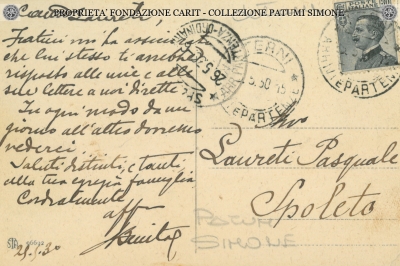 PROPRIETÀ FONDAZIONE CARIT - COLLEZIONE PATUMI SIMONE
Caro Laureti,
Fratini mi ha assicu
che lui stesso ti avrebbe
risposto alle mie e alle
sue lettere a voi dirette
In ogni modo da un
giorno all'altro dovresso
vederci
Saluti distinti, e tanti
alla tua egregia famiglia
Cordialmente
aff
TERNI
PARTENZE
Laureti Pasquale
Spoleto
PATUMI
SIMONE